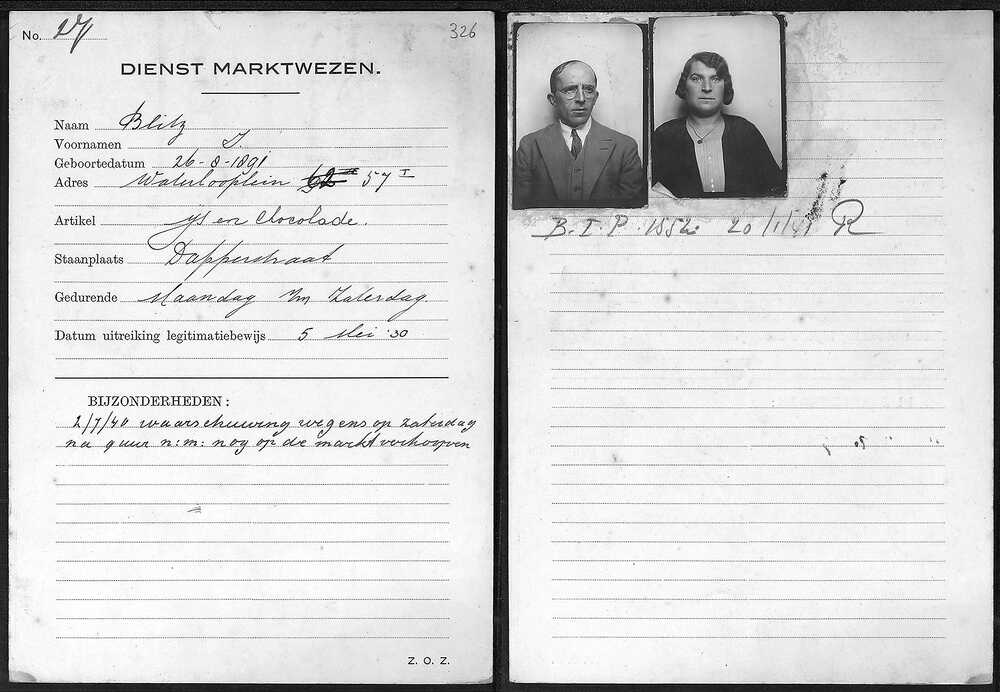 No. 27
326
DIENST MARKTWEZEN.
Naam Blitz
Voornamen I.
Geboortedatum 26-8-1891
Adres Waterlooplein 57 I
Artikel ijs en Chocolade.
Staanplaats Dapperstraat
Gedurende Maandag t/m Zaterdag.
Datum uitreiking legitimatiebewijs 5 Mei '30
BIJZONDERHEDEN:
2/7/40 waarschuwing wegens op zaterdag
na 9 uur n:m: nog op de markt verkoopen
Z. O. Z.
B.I.P. 1552 20/1/41 R